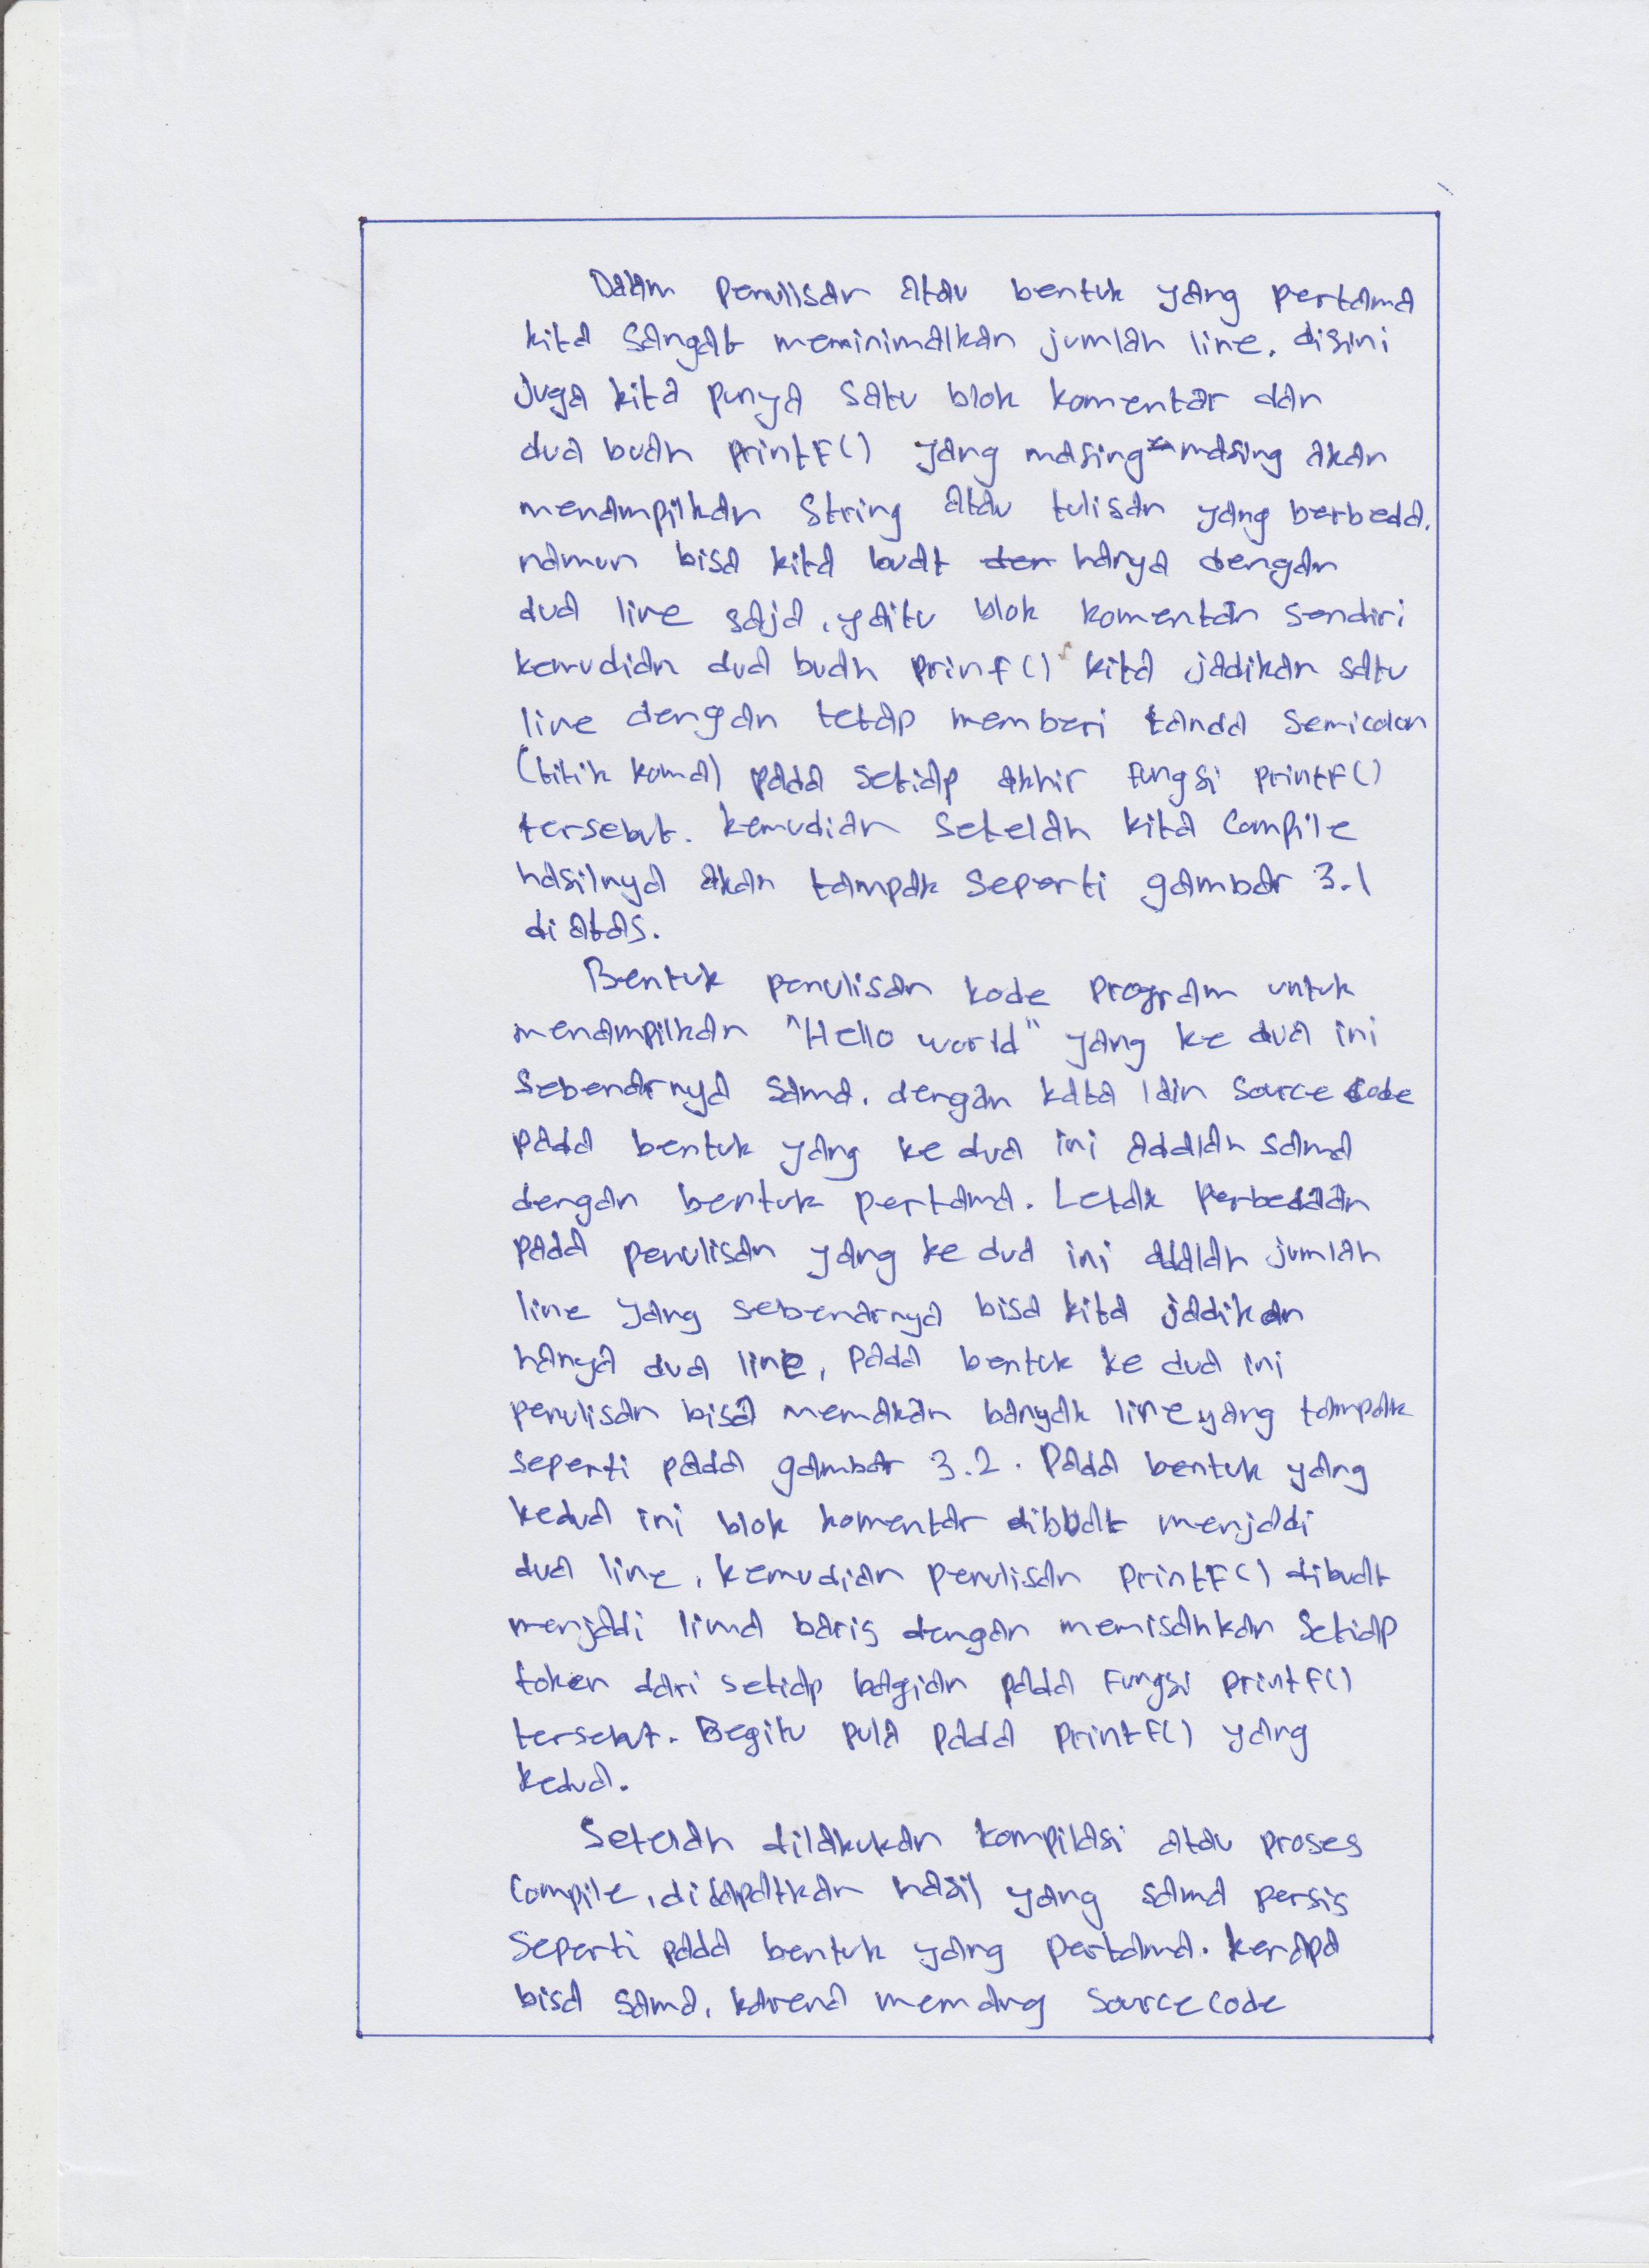 Dalam penulisan atau bentuk yang pertama
kita sangat meminimalkan jumlah line. disini
juga kita punya satu blok komentar dan
dua buah printF() yang masing-masing akan
menampilkan string atau tulisan yang berbeda.
namun bisa kita buat hanya dengan
dua line saja, yaitu blok komentar sendiri
kemudian dua buah prinf() kita jadikan satu
line dengan tetap memberi tanda semicolon
(titik koma) pada setiap akhir fungsi printF()
tersebut. kemudian setelah kita compile
hasilnya akan tampak seperti gambar 3.1
di atas.
Bentuk penulisan kode program untuk
menampilkan "Hello world" yang ke dua ini
sebenarnya sama. dengan kata lain source code
pada bentuk yang ke dua ini adalah sama
dengan bentuk pertama. Letak perbedaan
pada penulisan yang ke dua ini adalah jumlah
line yang sebenarnya bisa kita jadikan
hanya dua line, pada bentuk ke dua ini
penulisan bisa memakan banyak line yang tampak
seperti pada gambar 3.2. Pada bentuk yang
kedua ini blok komentar dibuat menjadi
dua line, kemudian penulisan printF() dibuat
menjadi lima baris dengan memisahkan setiap
token dari setiap bagian pada Fungsi printF()
tersebut. Begitu pula pada printF() yang
kedua.
Setelah dilakukan kompilasi atau proses
compile, didapatkan hasil yang sama persis
seperti pada bentuk yang pertama. kenapa
bisa sama, karena memang source code